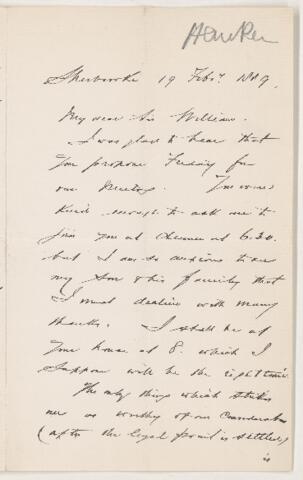 Sherbrooke 19 Feby. 1889.
My dear Sir William.
I was glad to hear that
you propose Friday for
our Meeting. You were
kind enough to ask me to
join you at dinner at 6.30.
but I am so anxious to see
my Son & his family that
I must decline with many
thanks. I shall be at
your house at 8. which I
suppose will be the right time.
The only thing which strikes
me as worthy of our Consideration
(after the legal point is settled)
is